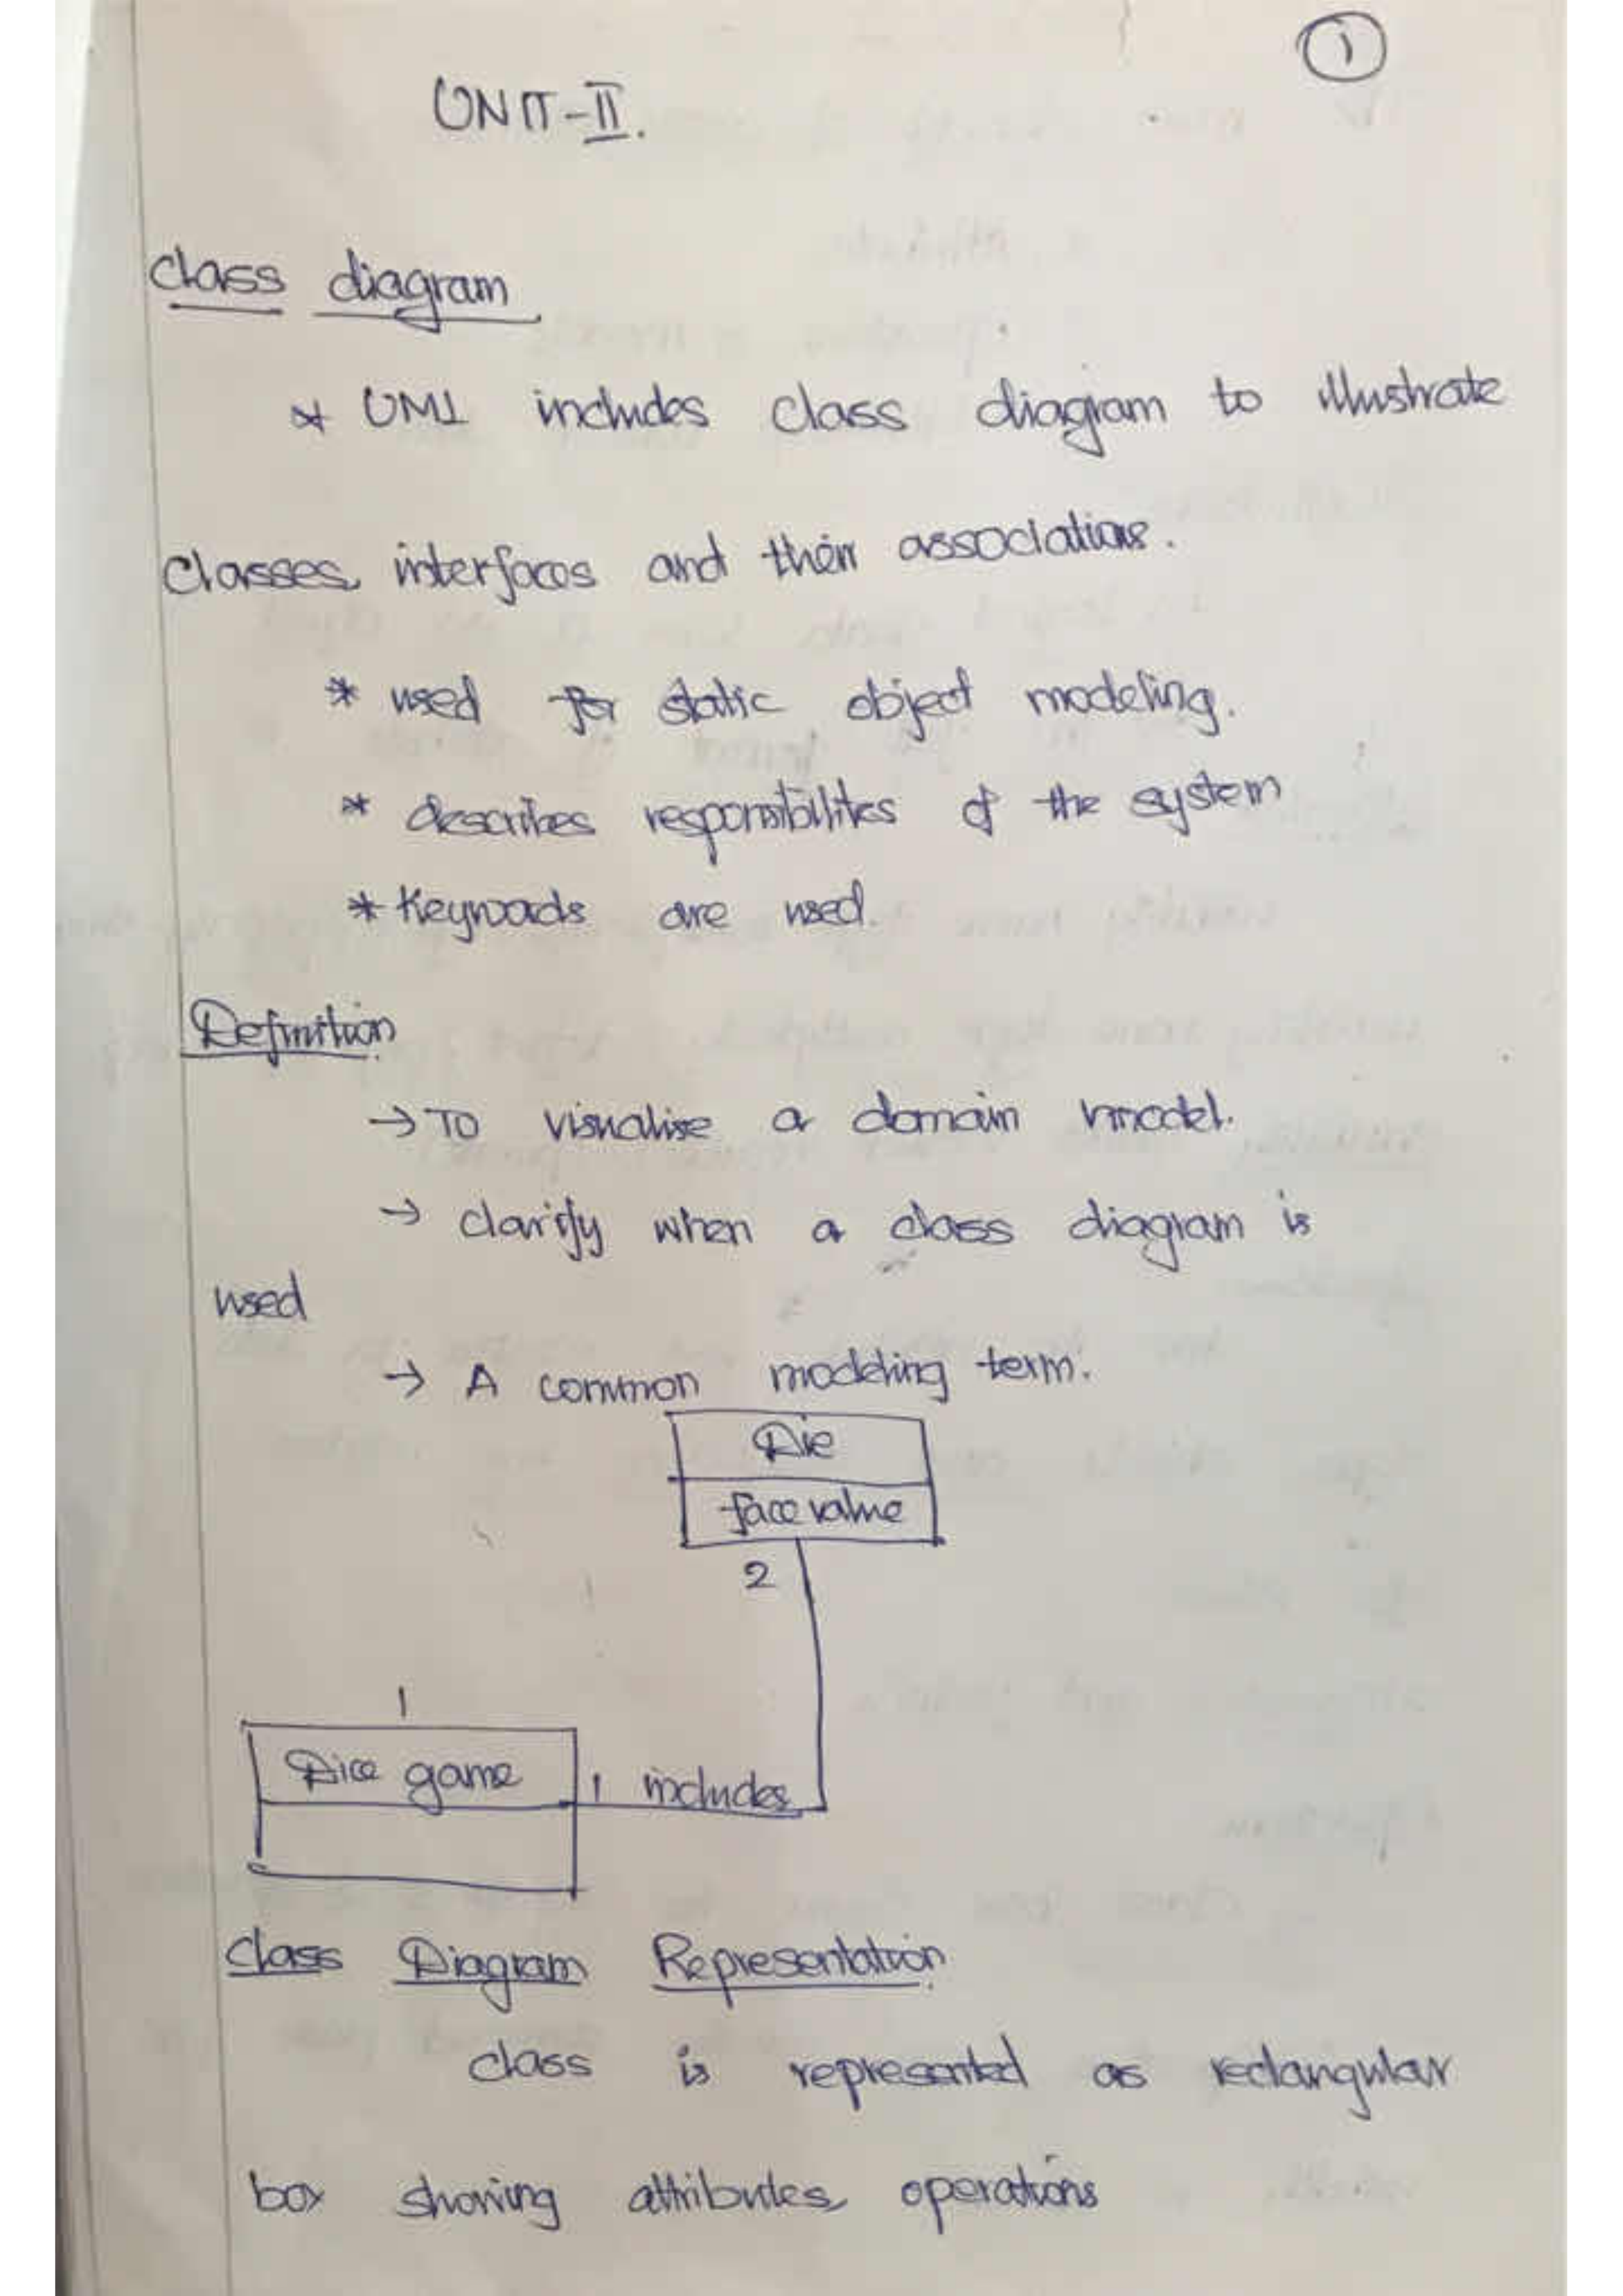 1
UNIT-II.
class diagram
* UML includes class diagram to illustrate
classes, interfaces and their associations.
* used for static object modeling.
* describes responsibilites of the system
* Keywords are used.
Definition
→ To visualise a domain model.
→ clarify when a class diagram is
used
→ A common modeling term.
Die
face value
2
1
Dice game
1 includes
Class Diagram Representation
class is represented as rectangular
box showing attributes, operations